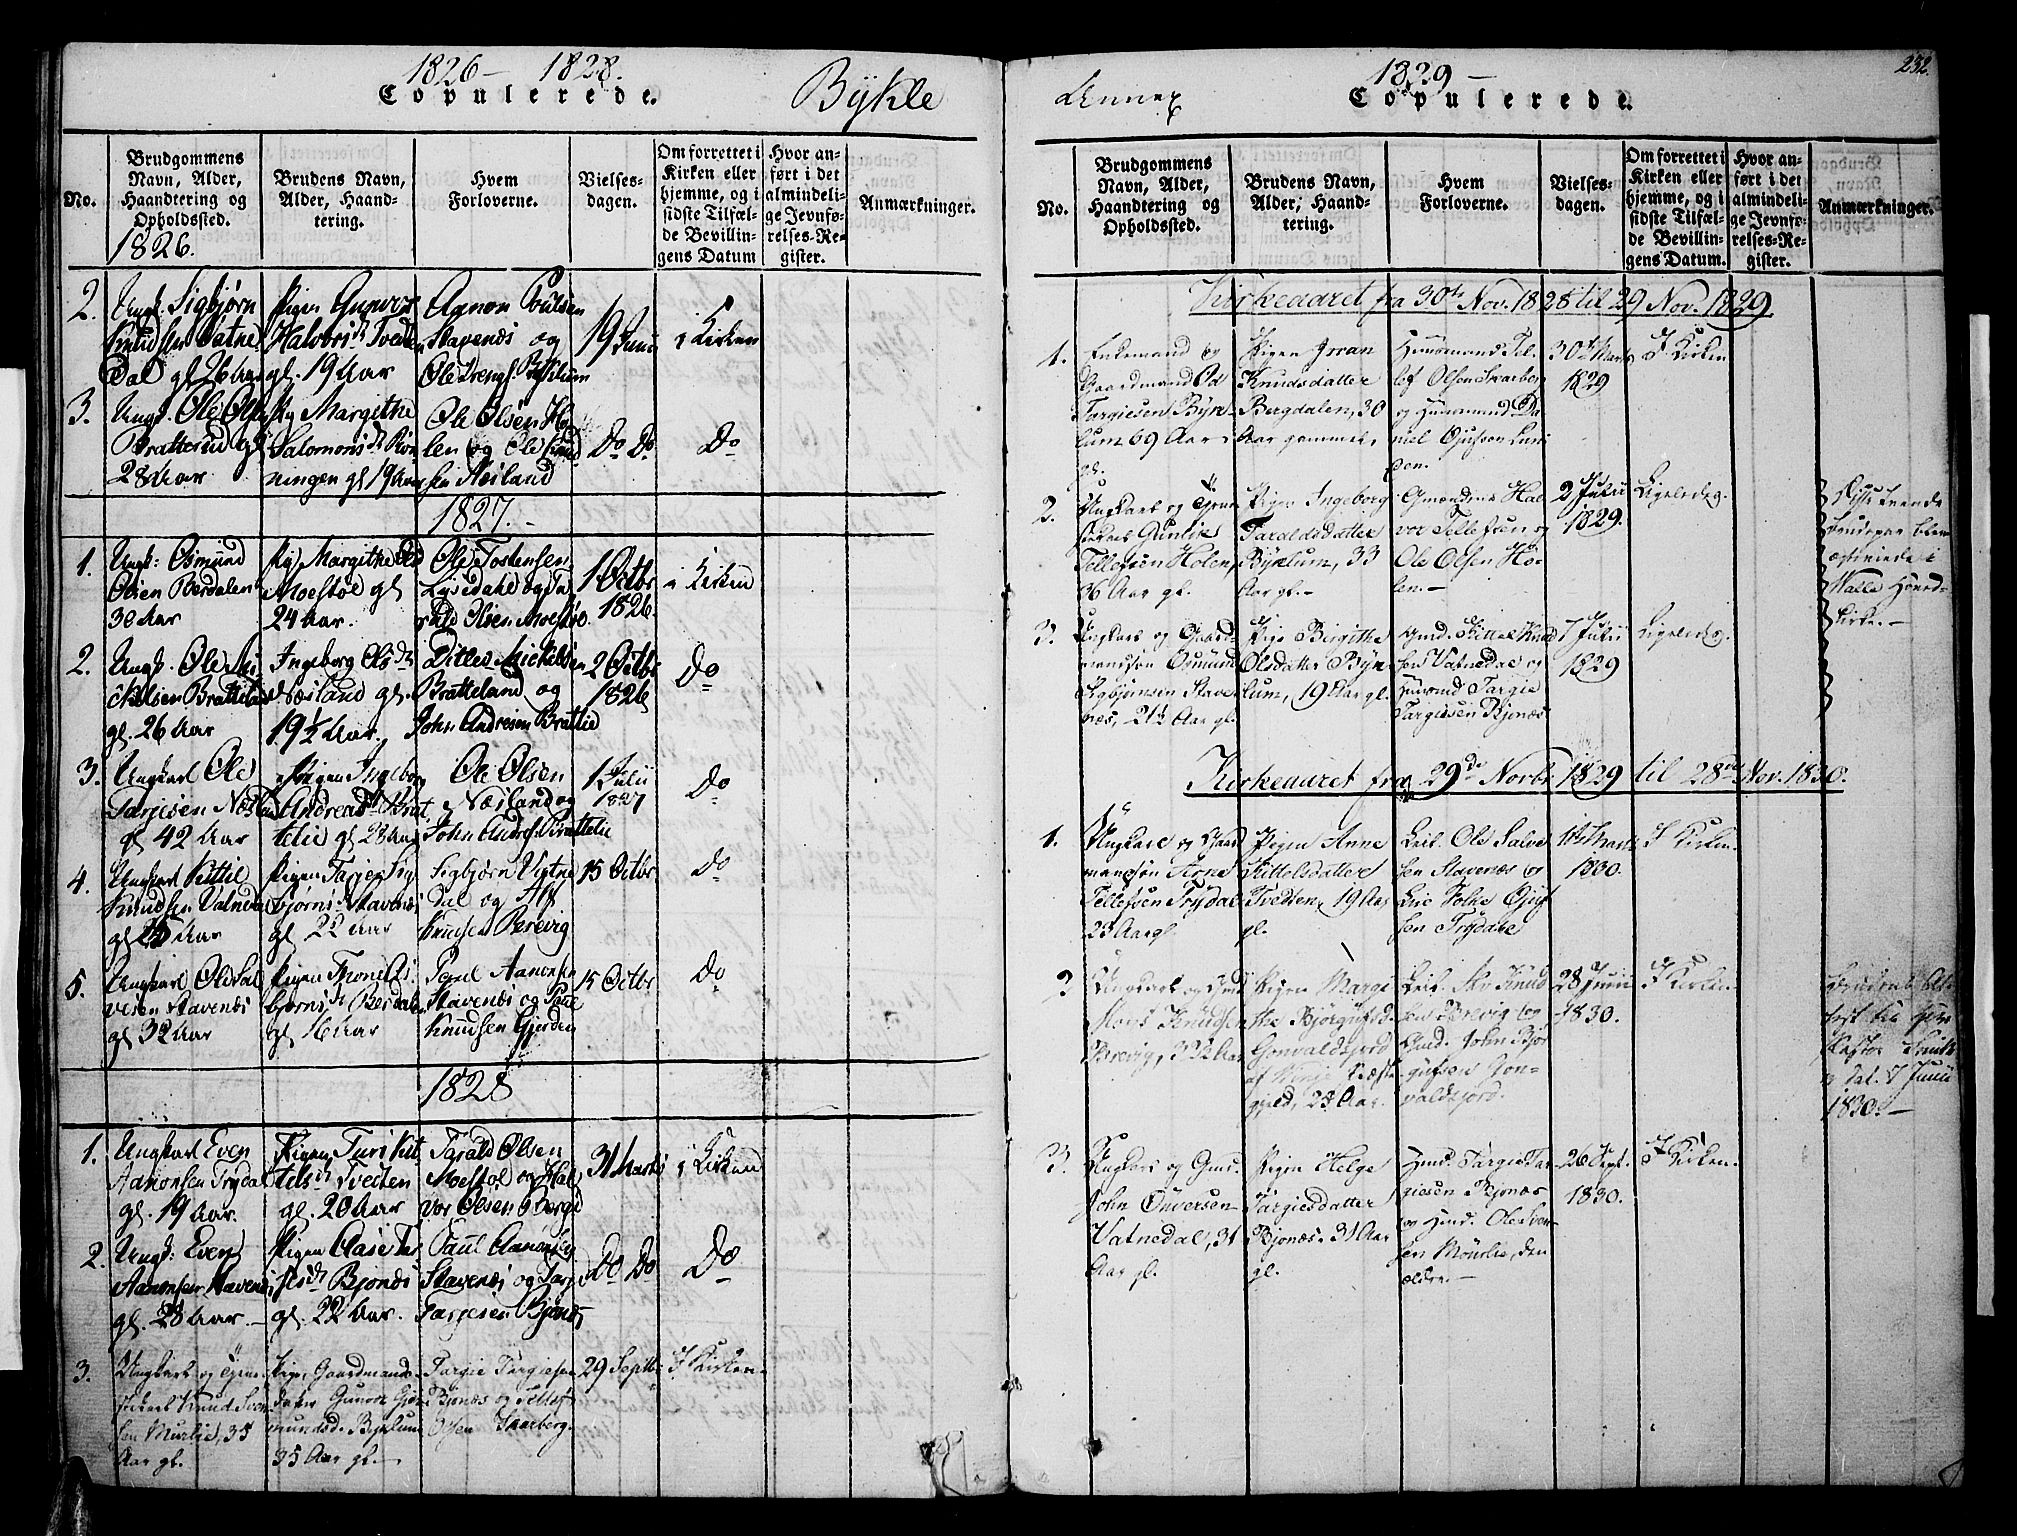 1826 – 1828.
Copulerede.
Bykle
No.
Brudgommens
Navn, Alder,
Haandtering og
Opholdssted.
Brudens Navn,
Alder, Haand-
tering.
Hvem
Forloverne.
Vielses-
dagen.
Om forrettet i
Kirken eller
hjemme, og i
sidste Tilfæl-
de Bevillin-
gens Datum
Hvor an-
ført i det
almindeli-
ge Jevnfø-
relses-Re-
gister.
Anmærkninger.
1826.
2.
Ungk. Sigbjørn
Knudsen Vatne
Dal gl 26 Aar
Pigen Gunvor
Halvorsdr Tvedten
gl. 19 Aar
Aanon Poulsen
Stavenæs og
Ole Drengs. Byklum
19 Junii
i Kirken
3.
Ungk. Ole Olsen
Bratterud gl
28 Aar
Pig Margithe
Salomonsdr
ningen gl 19 Aar
Ole Olsen Ho
len og Ole Knud
sen Næsland
Do Do
Do
1827.
1.
Ungk: Osmund
Olsen Berdalen
30 Aar
Pig Margithe Olsd
Moestøl gl
24 Aar.
Ole Tostensen
og Ta
rald Olsen Moestøl
1 Octbr
1826
i Kirken
2.
Ungk. Ole Mi
chelsen Bratteland
gl. 26 Aar
Ingeborg Olsdr
Næsland gl.
19½ Aar.
Ditlev Mickelsen
Bratteland og
John Andresen Brattlie
2 Octbr
1826
Do
3.
Ungkarl Ole
Tarjesen Næsland
gl 42 Aar
Pigen Ingeborg
Andreasdr Brat
telie gl 28 Aar
Ole Olsen
Næsland og
John Andres. Brattelie
1 Julii
1827
Do
4.
Ungkarl Kittil
Knudsen Vatnedal
gl 25 Aar
Pigen Tarjer Sig
bjørnsdr Stavenæs
gl 22 Aar
Sigbjørn Vatne
Dal og Alf
Knudsen Berevig
15 Octbr
Do
5.
Ungkarl Ole Sal
vesen Stavenæs
gl 32 Aar
Pigen Thone
bjørnsdr Berdalen
gl 16 Aar
Poul Aanonsen
Stavenæs og
Knudsen Gjerden
15 Octbr
Do
1828
1.
Ungkarl Even
Aanonsen Trydal
gl. 19 Aar.
Pigen Turi Kit
telsdr Tvedten
gl. 20 Aar
Tarald Olsen
Moestøl og Hal
vor Olsen Berge
31 Marts
i Kirken
2.
Ungk: Even
Aanonsen Stavenæs
gl. 28 Aar.
Pigen Aase Tar
jesdr Bjonæs
gl. 22 Aar.
Paul Aanonsen
Stavenæs og Tarje
Tarjesen Bjonæs
Do Do
Do
3.
Ungkarl og Tjene
stekarl Knud Sven
sen Murlie, 35
Aar gl.
Pige, Gaardmands-
datter Gunor Gjer
mundsd. Byklum
35 Aar gl.
Targie Targiesen
Bjonæs og Tellef
Olsen Skarberg.
29 Septbr
I Kirken.
Annex
1829 –
Copulerede.
232.
No.
Brudgommens
Navn, Alder,
Haandtering og
Opholdssted.
Brudens Navn,
Alder, Haand-
tering.
Hvem
Forloverne.
Vielses-
dagen.
Om forrettet i
Kirken eller
hjemme, og i
sidste Tilfæl-
de Bevillin-
gens Datum.
Hvor an-
ført i det
almindeli-
ge Jevnfø-
relses-Re-
gister.
Anmærkninger.
Kirkeaaret fra 30te Nov. 1828 til 29 Nov. 1829.
1.
Enkemand og
Gaardmand Od
Targiesen Byk-
lum 69 Aar
gl.
Pigen Groan
Knudsdatter
Bergdalen, 30
Aar gammel,
Huusmand Tel
lef Olsen Skarberg
og Huusmand Da
niel Ojufson
den.
30te Marts
1829
I Kirken
2.
Ungkarl og Tjene
stekarl Gunlik
Tellefsen Holen,
36 Aar gl.
Pigen Ingeborg
Taraldsdatter
Byklum, 33
Aar gl.
Gmændene Hal
vor Tellefsen og
Ole Olsen Ho-
len.
2 Julii
1829.
Ligeledes.
Disse tvende
Brudepar bleve
copulerede i
Walle Hoved-
kirke.
3.
Ungkarl og Gaard-
mandssøn Osmund
Sigbjønsen Stave
næs, 21½ Aar gl.
Pige Birgitte
Olsdatter Byk
lum, 19 Aar gl.
Gmd. Kittel Knud
sen Vatnedal og
Huusmd Targie
Targiesen Bjonæs
7 Julii
1829
Ligeledes.
Kirkeaaret fra 29de Novbr 1829 til 28de Nov. 1830.
1.
Ungkarl og Gaard
mandssøn Arne
Tellefsen Trydal
23 Aar gl.
Pigen Anne
Kittelsdatter
Tvedten, 19 Aar
gl.
Leil. Ole Salve
sen Stavenæs og
Leil. Folke Ojuf
sen Trydal
Marts
1830.
I Kirken.
2
Ungkarl og Gmd
Mons Knudsen
Brevig, 32½ Aar
Pigen Margi
the Bjørgufsd.
Gonvaldsjord
af Præste
gjeld, 25 Aar.
Leil. Knud
sen Brevig og
Gmd. John Bjør
gufsen Gon-
valdsjord.
28 Junii
1830.
I Kirken.
Brudens At-
test fra Hr.
Pastor
dat. 7 Junii
1830.
3.
Ungkarl og Gmd.
John Onversen
Vatnedal, 31
Aar gl.
Pigen Helge
Targiesdatter
Bjonæs. 31 Aar
gl.
Hmd. Targie Tar
giesen Bjonæs
og Hmd. Ole Sven
sen Mourlie, den
ældre.
26 Sept.
1830.
I Kirken.